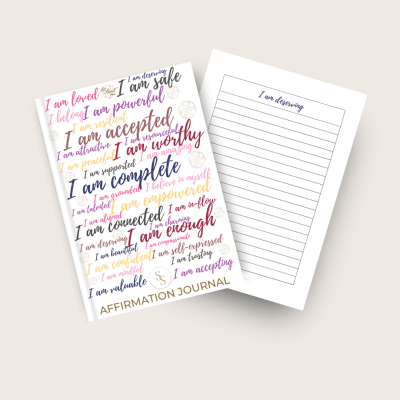 I am deserving
I am loved I am safe
I belong I am powerful
I am resilient
I am accepted
I am attractive I am resourceful
I am worthy
I am peaceful I am amazing
I am supported
I am complete
I am grounded I believe in myself
I am talented I am empowered
I am aligned I am in-flow
I am connected I am charming
I am deserving I am enough
I am beautiful I am compassionate
I am confident I am self-expressed
I am mindful I am trusting
I am valuable I am accepting
AFFIRMATION JOURNAL
I am deserving